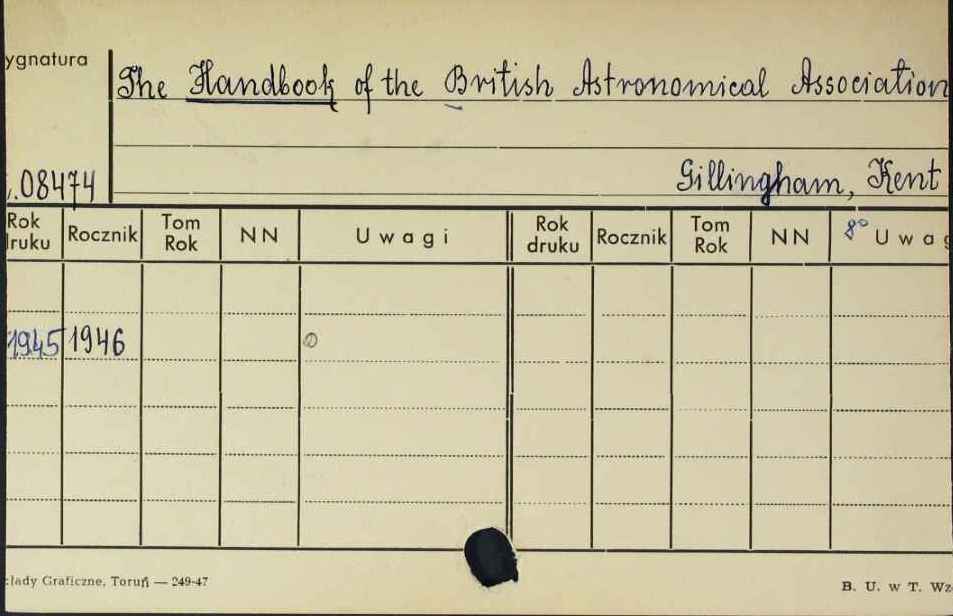 ygnatura
The Handbook of the British Astronomical Association
.08474
Gillingham, Kent
Rok druku Rocznik Tom Rok NN Uwagi Rok druku Rocznik Tom Rok NN 8° Uwag
1945 1946
kłady Graficzne, Toruń — 249-47
B. U. w T. Wz